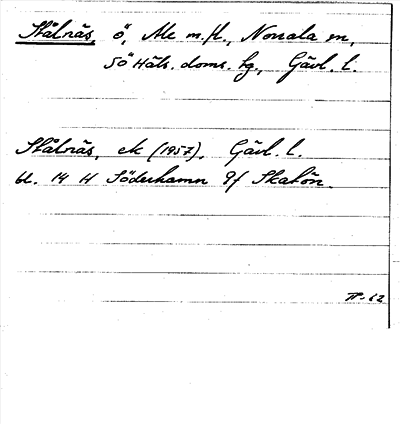 Stålnäs, ö, Ale m.fl., Norrala sn,
Sö Häls. doms. tg, Gävl. l.
Stålnäs, ek (1957), Gävl. l.
bl. 14 H Söderhamn 9f Skatön.